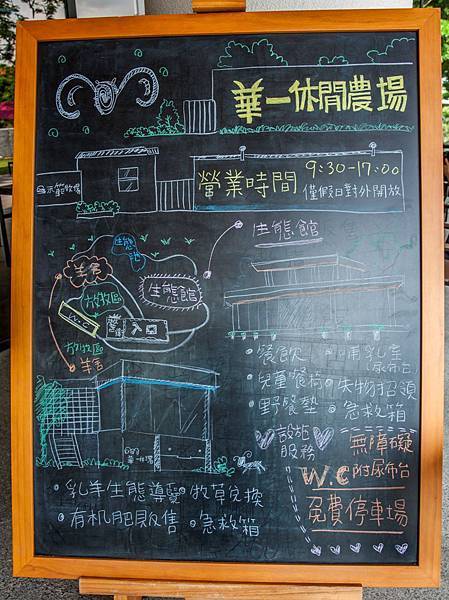 華一休閒農場
營業時間 9:30-17:00
僅假日對外開放
示範牧場
生態館
生態池
羊舍
生態館
放牧區
W.C
入口
放牧區
羊舍
餐飲
哺乳室
尿布台
兒童餐椅
失物招領
野餐墊
急救箱
設施
服務
華一牧場
無障礙
W.C
附尿布台
免費停車場
乳羊生態導覽
牧草兌換
有机肥販售
急救箱